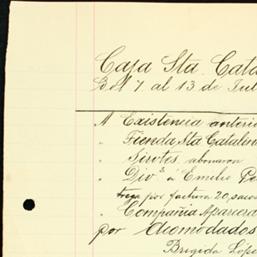 Caja Sta. Cata
Del 7 al 13 de Ju
A Existencia anteri
" Tienda Sta Catalin
" Sirotes abonaron
" Div.s á Emilio Pe
trega por factura 20, saco
" Compañia Aparcera
por Acomodados
Brigida Lópe